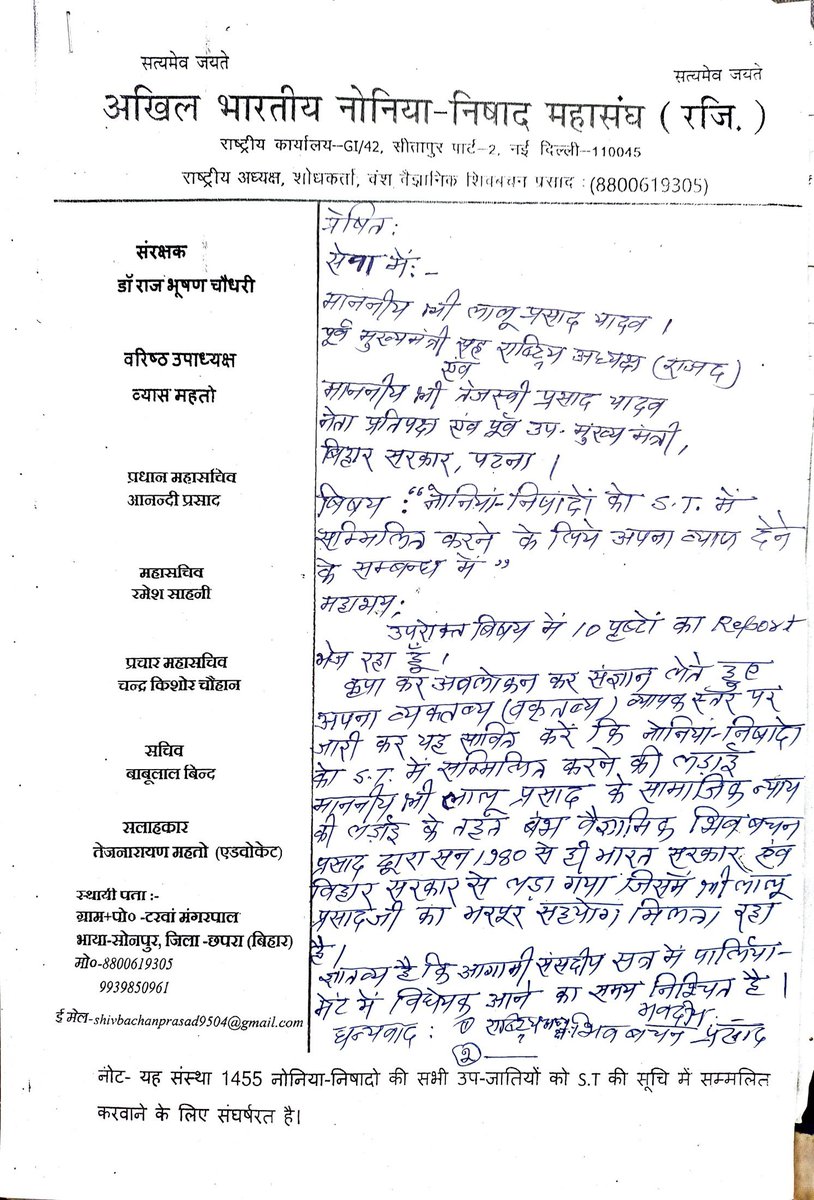 सत्यमेव जयते
सत्यमेव जयते
अखिल भारतीय नोनिया-निषाद महासंघ ( रजि. )
राष्ट्रीय कार्यालय--GI/42, सीतापुर पार्ट-2, नई दिल्ली-110045
राष्ट्रीय अध्यक्ष, शोधकर्ता, वंश वैज्ञानिक शिवबचन प्रसाद : (8800619305)
संरक्षक
डॉ राज भूषण चौधरी
वरिष्ठ उपाध्यक्ष
व्यास महतो
प्रधान महासचिव
आनन्दी प्रसाद
महासचिव
रमेश साहनी
प्रचार महासचिव
चन्द्र किशोर चौहान
सचिव
बाबूलाल बिन्द
सलाहकार
तेजनारायण महतो (एडवोकेट)
स्थायी पता :-
ग्राम+पो० -टरवां मंगरपाल
भाया-सोनपुर, जिला -छपरा (बिहार)
मो०-8800619305
9939850961
ई मेल-shivbachanprasad9504@gmail.com
प्रेषित :
सेवा में :-
माननीय श्री लालू प्रसाद यादव ।
पूर्व मुख्यमंत्री सह राष्ट्रिय अध्यक्ष (राजद)
एंव
माननीय श्री तेजस्वी प्रसाद यादव
नेता प्रतिपक्ष एंव पूर्व उप-मुख्य मंत्री,
बिहार सरकार, पटना ।
बिषय : "नोनियां-निषादों को S.T. में
सम्मिलित करने के लिये अपना व्यान देने
के सम्बन्ध में "
महाशय;
उपरोक्त बिषय में 10 पृष्टों का Report
भेज रहा हूँ ।
कृपा कर अवलोकन कर संज्ञान लेते हुए
अपना व्यक्तव्य (वकृतव्य) व्यापक स्तर पर
जारी कर यह सावित करें कि नोनियां-निषादो
को S.T. में सम्मिलित करने की लड़ाई
माननीय श्री लालू प्रसाद के सामाजिक न्याय
की लड़ाई के तहत बंश वैज्ञानिक शिव बचन
प्रसाद द्वारा सन 1980 से ही भारत सरकार एंव
बिहार सरकार से लड़ा गया जिसमें श्री लालू
प्रसादजी का भरपूर सहयोग मिलता रहा
है ।
ज्ञातव्य है कि आगामी संसदीय सत्र में पार्लिया-
मेंट में विधेयक आने का समय निश्चित है ।
भवदीय:
धन्यवाद : राष्ट्रिय शिव बचन प्रसाद
2
नोट- यह संस्था 1455 नोनिया-निषादो की सभी उप-जातियों को S.T की सूचि में सम्मलित
करवाने के लिए संघर्षरत है।